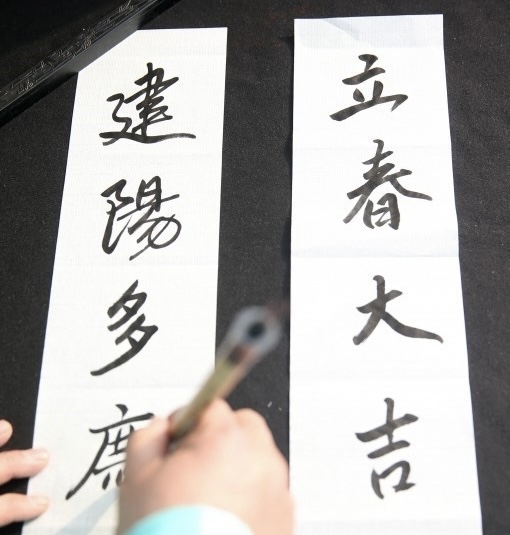 立春大吉
建陽多